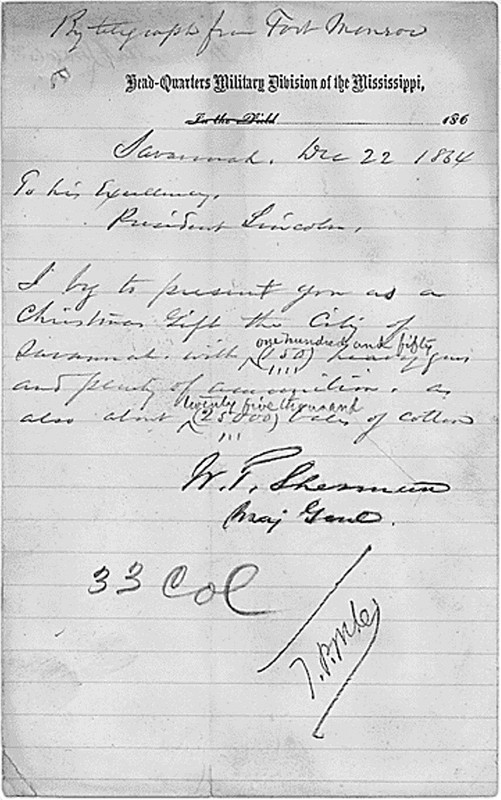 By telegraph from Fort Monroe
Head-Quarters Military Division of the Mississippi,
In the Field 186
Savannah, Dec 22 1864
To his Excellency,
President Lincoln,
I beg to present you as a
Christmas Gift the City of
one hundred and fifty
Savannah. with (150) heavy guns
and plenty of ammunition. as
twenty five thousand
also about (25000) bales of cotton
W. T. Sherman
Maj Genl.
33 Col